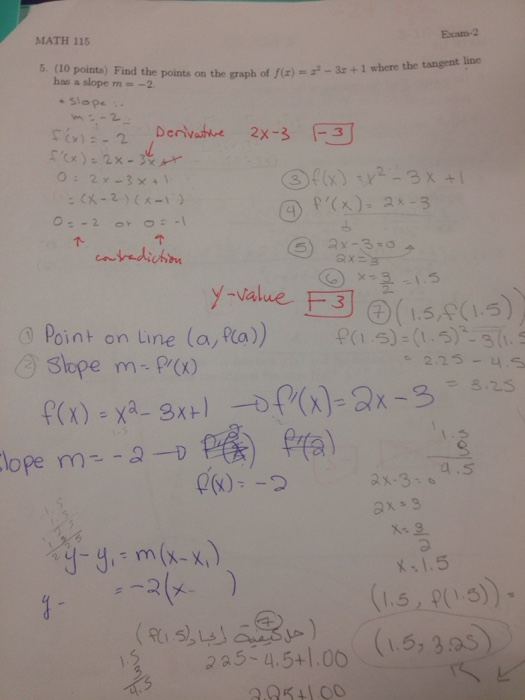 MATH 115
Exam-2
5. (10 points) Find the points on the graph of f(x) = x² − 3x + 1 where the tangent line
has a slope m = −2.
* slope :.
m = -2
f'(x) = - 2
Derivative 2x-3 [-3]
f'(x) = 2x - 3
0 = 2x - 3x + 1
= (x-2)(x-1)
0 = -2 or 0 = -1
contradiction
③ f(x) = x² - 3x + 1
④ f'(x) = 2x - 3
⑤ 2x-3=0
2x=3
⑥ x = 3/2 = 1.5
y-value [-3]
⑦ (1.5, f(1.5))
f(1.5) = (1.5)² - 3(1.5
= 2.25 - 4.5
= 3.25
① Point on Line (a, f(a))
② Slope m = f'(x)
f(x) = x² - 3x+1 → f'(x) = 2x - 3
slope m = -2 →
f'(x) = -2
1.5
3
4.5
2x-3=0
2x=3
x = 3/2
x = 1.5
y - y₁ = m(x-x₁)
= -2(x- )
y -
(1.5, f(1.5))
(1.5, 3.25)
2.25-4.5+1.00
1.5
3
4.5
2.25+1.00